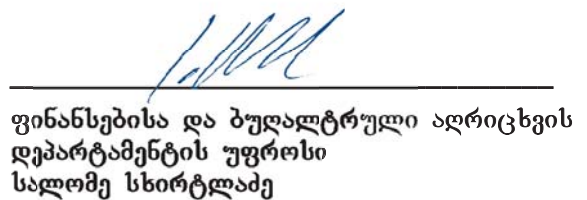 ფინანსებისა და ბუღალტრული აღრიცხვის
დეპარტამენტის უფროსი
სალომე სხირტლაძე